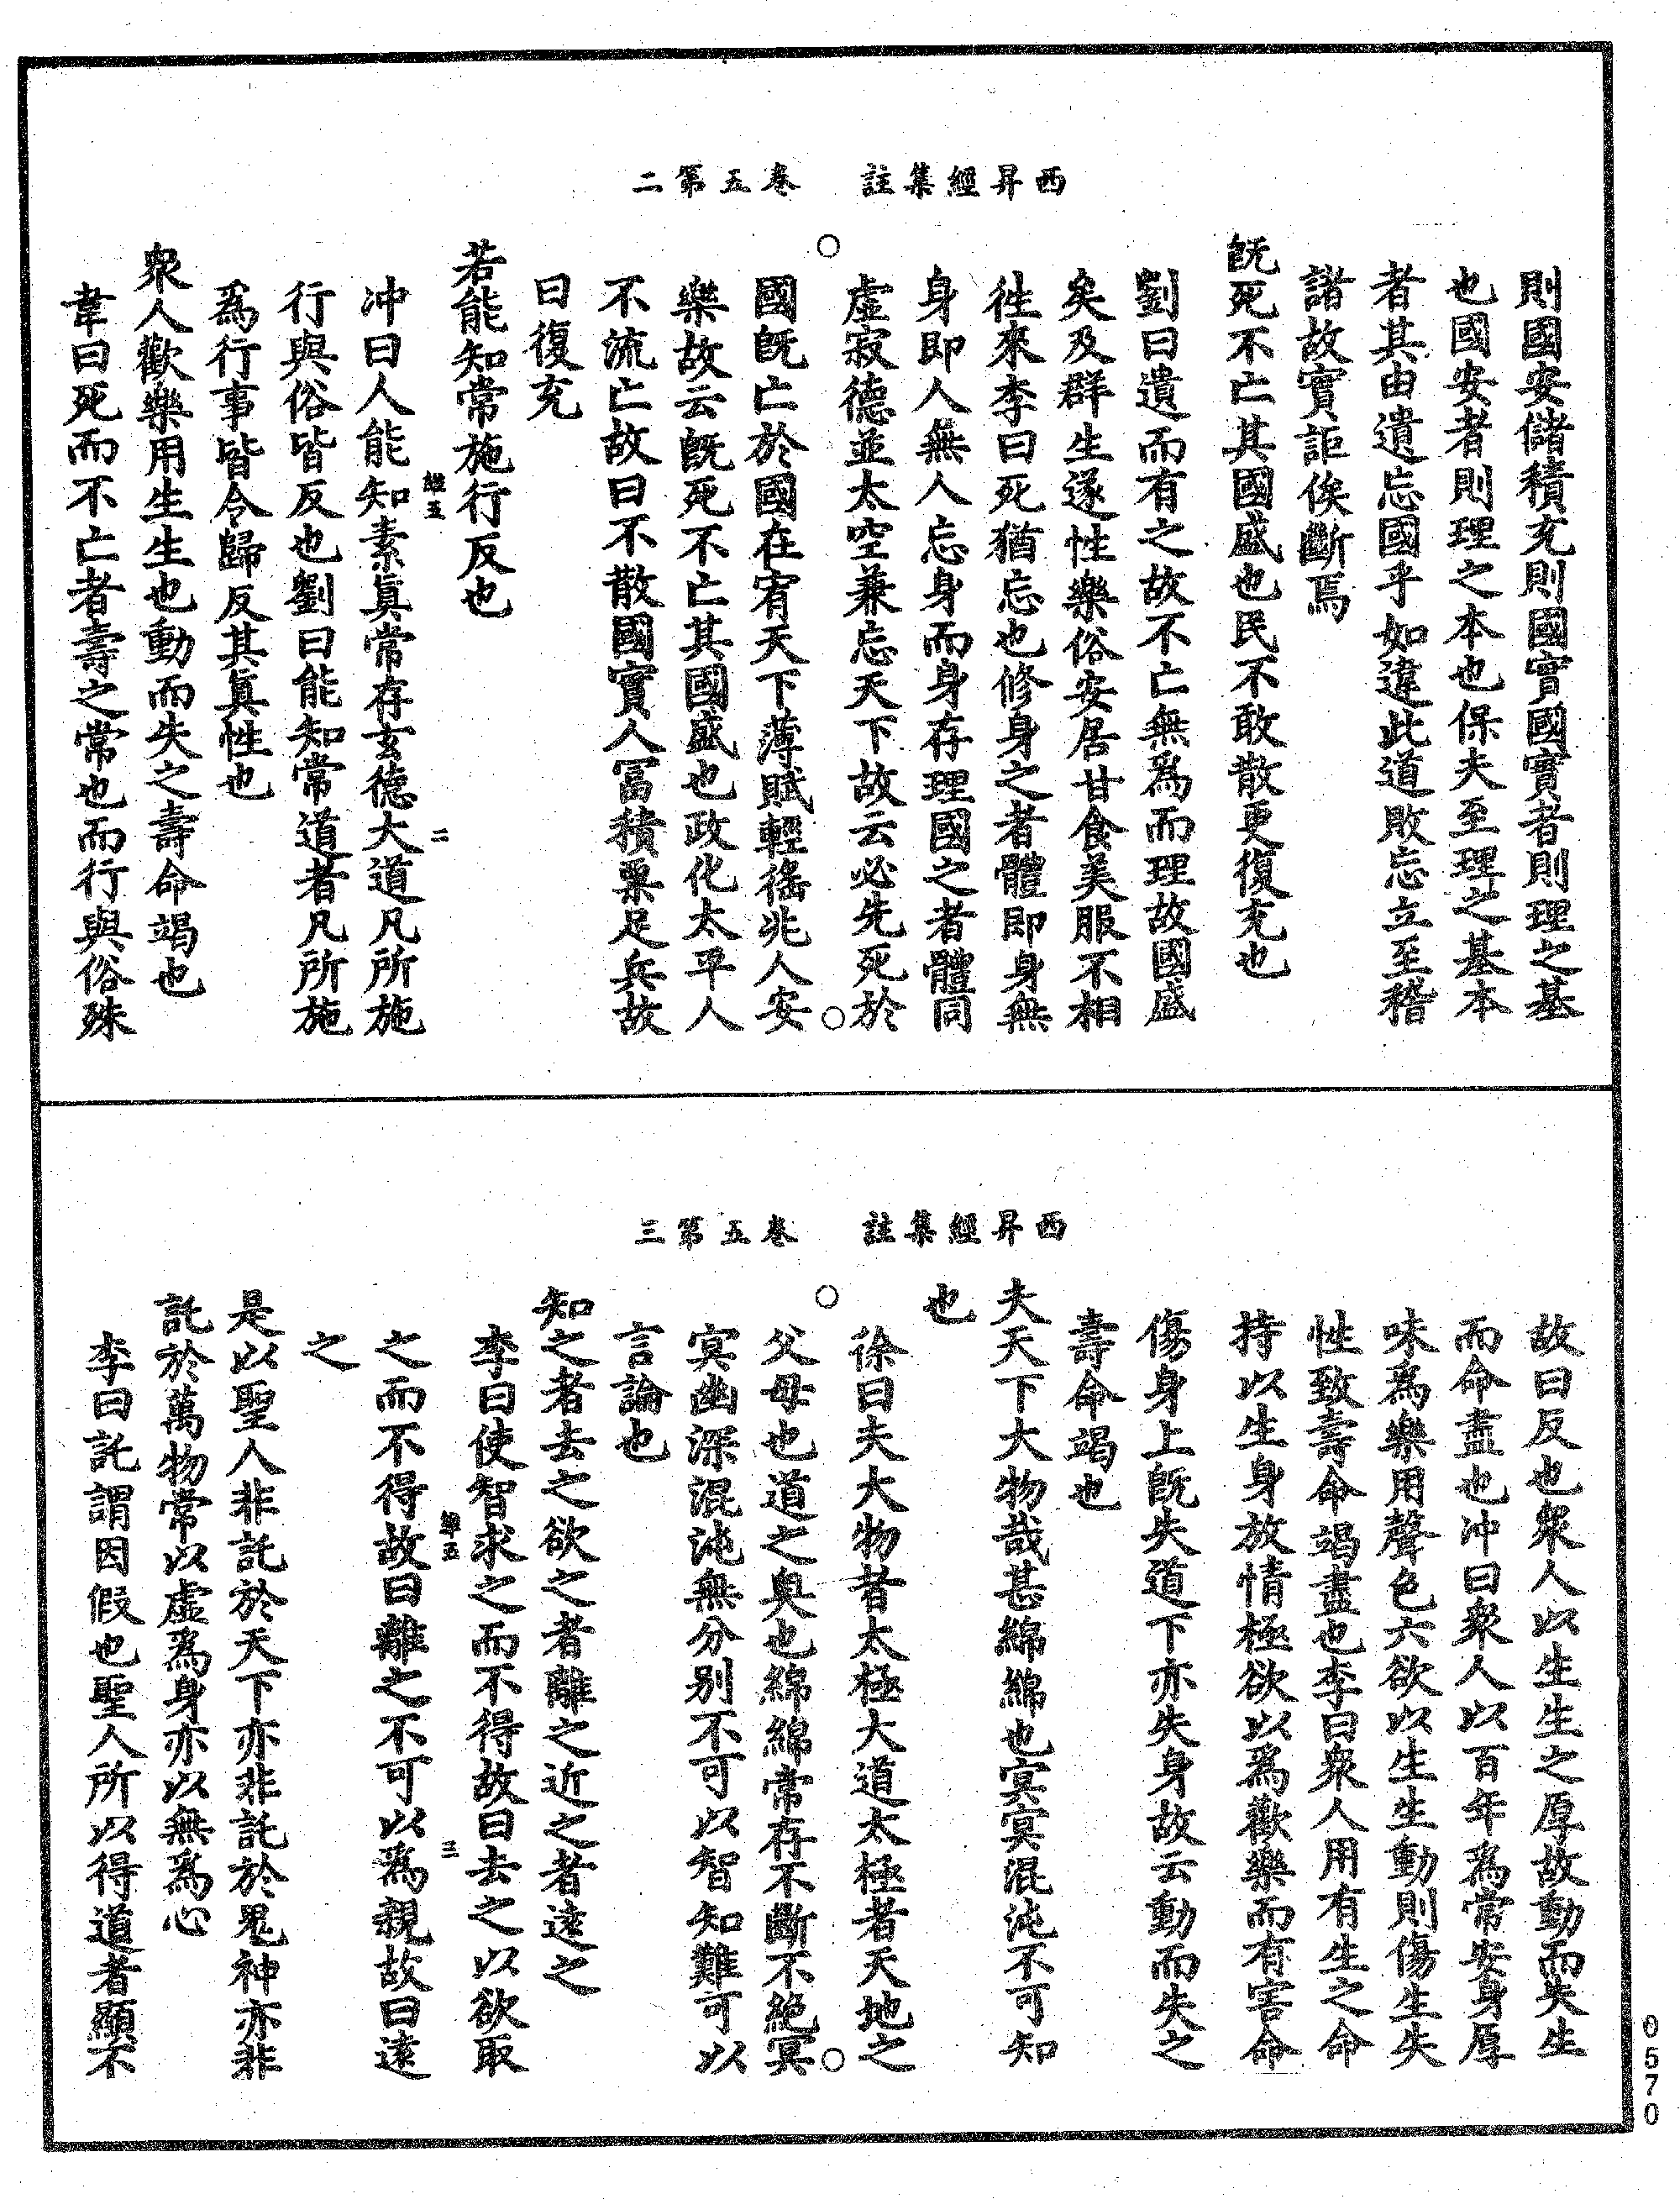 西昇經集註　卷五第二
則國安儲積充則國實國實者則理之基
也國安者則理之本也保夫至理之基本
者其由遺忘國乎如違此道敗忘立至稽
諸故實詎俟斷焉
旣死不亡其國盛也民不敢散更復充也
劉曰遺而有之故不亡無爲而理故國盛
矣及群生遂性樂俗安居甘食美服不相
徃來李曰死猶忘也修身之者體即身無
身即人無人忘身而身存理國之者體同
虛寂德並太空兼忘天下故云必先死於
國旣亡於國在宥天下薄賦輕徭兆人安
樂故云旣死不亡其國盛也政化太平人
不流亡故曰不散國實人冨積粟足兵故
曰復充
若能知常施行反也
經五
二
冲曰人能知素眞常存玄德大道凡所施
行與俗皆反也劉曰能知常道者凡所施
爲行事皆令歸反其眞性也
衆人歡樂用生生也動而失之壽命竭也
韋曰死而不亡者壽之常也而行與俗殊
西昇經集註　卷五第三
故曰反也衆人以生生之厚故動而失生
而命盡也冲曰衆人以百年爲常安身厚
味爲樂用聲色六欲以生生動則傷生失
性致壽命竭盡也李曰衆人用有生之命
持以生身放情極欲以爲歡樂而有害命
傷身上旣失道下亦失身故云動而失之
壽命竭也
夫天下大物哉甚綿綿也冥冥混沌不可知
也
徐曰夫大物者太極大道太極者天地之
父母也道之奥也綿綿常存不斷不絶冥
冥幽深混沌無分别不可以智知難可以
言論也
知之者去之欲之者離之近之者遠之
李曰使智求之而不得故曰去之以欲取
經五
三
之而不得故曰離之不可以爲親故曰遠
之
是以聖人非託於天下亦非託於鬼神亦非
託於萬物常以虛爲身亦以無爲心
李曰託謂因假也聖人所以得道者顯不
0570